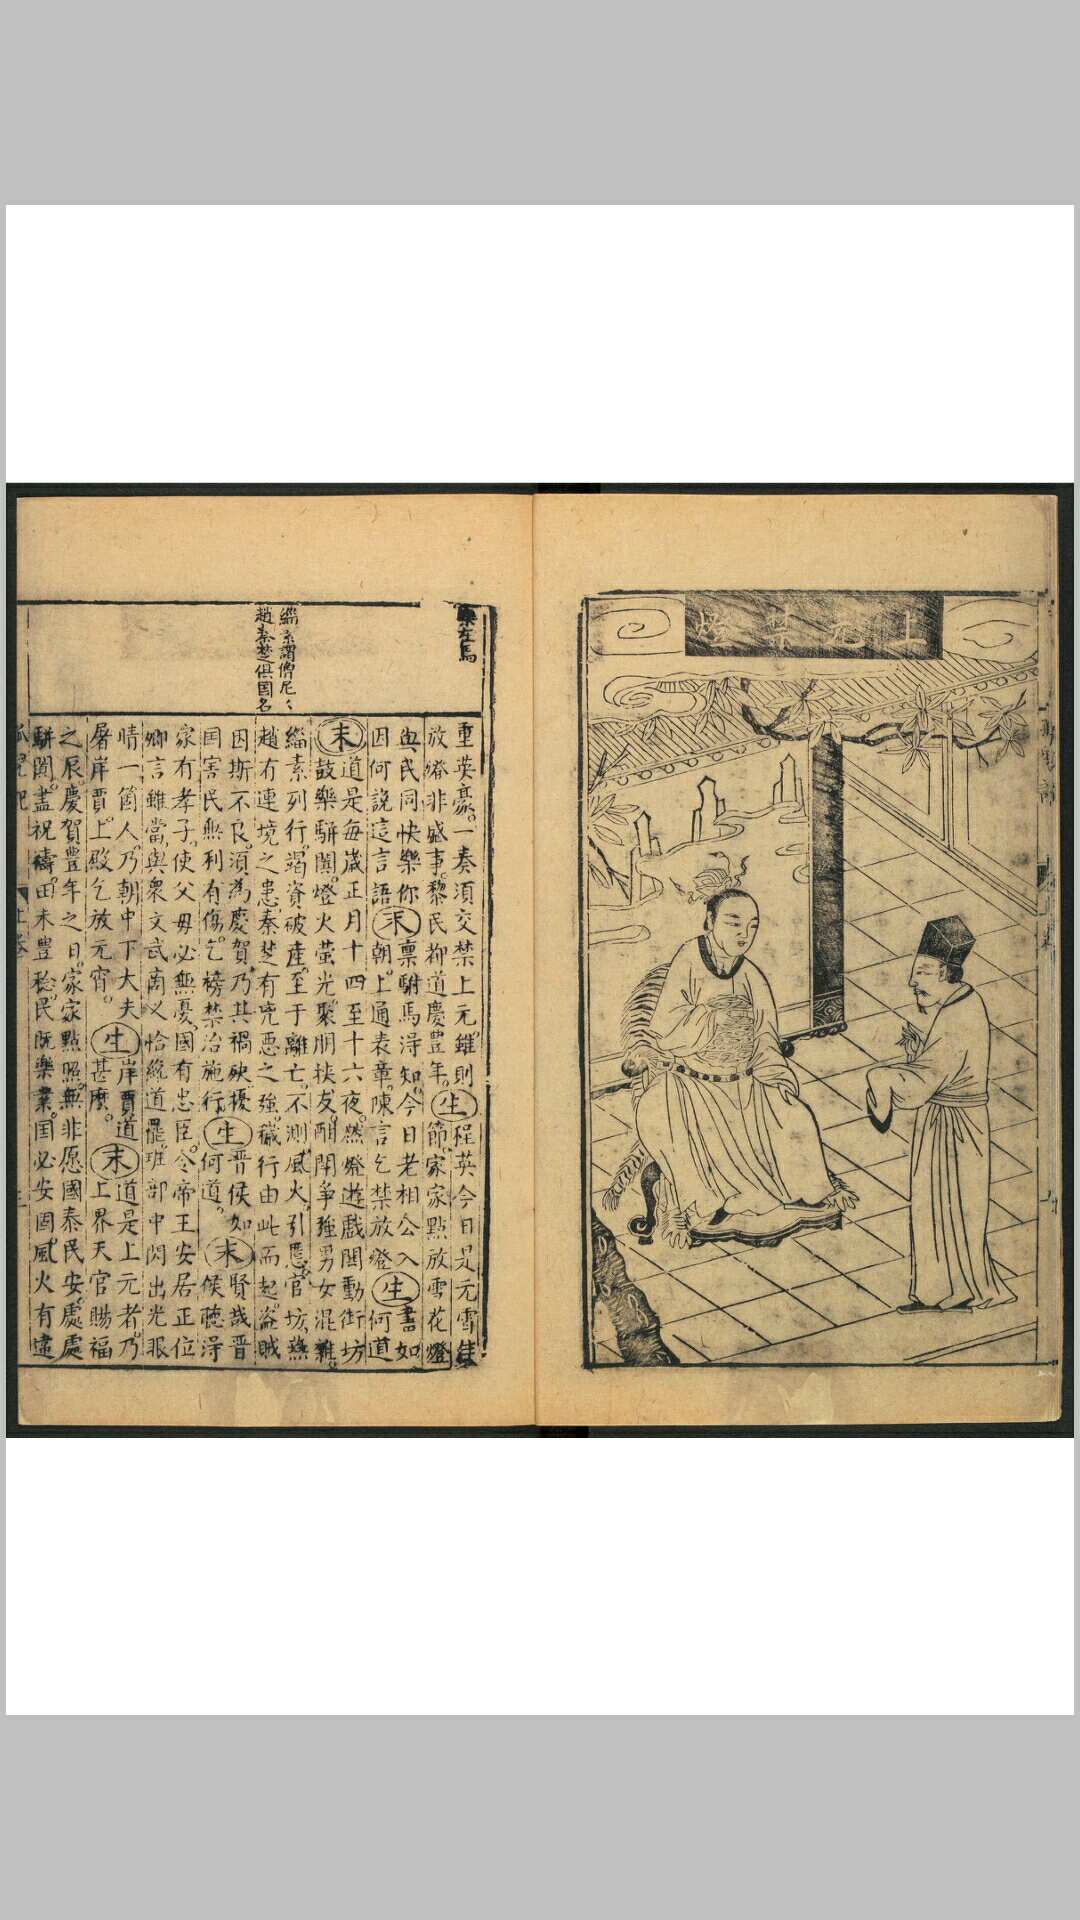 上元禁燈
樂左馬
緇素謂僧尼
趙秦楚俱國名
重英豪一奏須交禁上元雖則
放燈非盛事黎民抑道慶豊年生節家家點放雪花燈
與民同快樂你末禀駙馬淂知今日老相公入生書如
因何說這言語末朝上通表章陳言乞禁放燈生何道
末道是每歲正月十四至十六夜然燈遊戲閙動街坊
鼓樂駢闐燈火螢光聚朋挾友酣閗爭強男女混雜
緇素列行竭資破產至于離亡不測風火引惹官坊燕
趙有連境之患秦楚有兇惡之強穢行由此而起盗賊
因斯不良須為慶賀乃其禍殃擾生晋侯如末賢哉晋
国害民無利有傷乞榜禁治施行生何道末侯聽淂
家有孝子使父毋必無憂國有忠臣令帝王安居正位
卿言雖當與衆文武商义恰纔道罷班部中閃出光眼
睛一箇人乃朝中下大夫生岸賈道末道是上元者乃
屠岸賈上殿乞放元宵生甚麽末上界天官賜福
之辰慶賀豊年之日家家點照無非愿國泰民安處處
駢闐盡祝禱田禾豊稔民既樂業国必安固風火有違
孤兒記
上卷